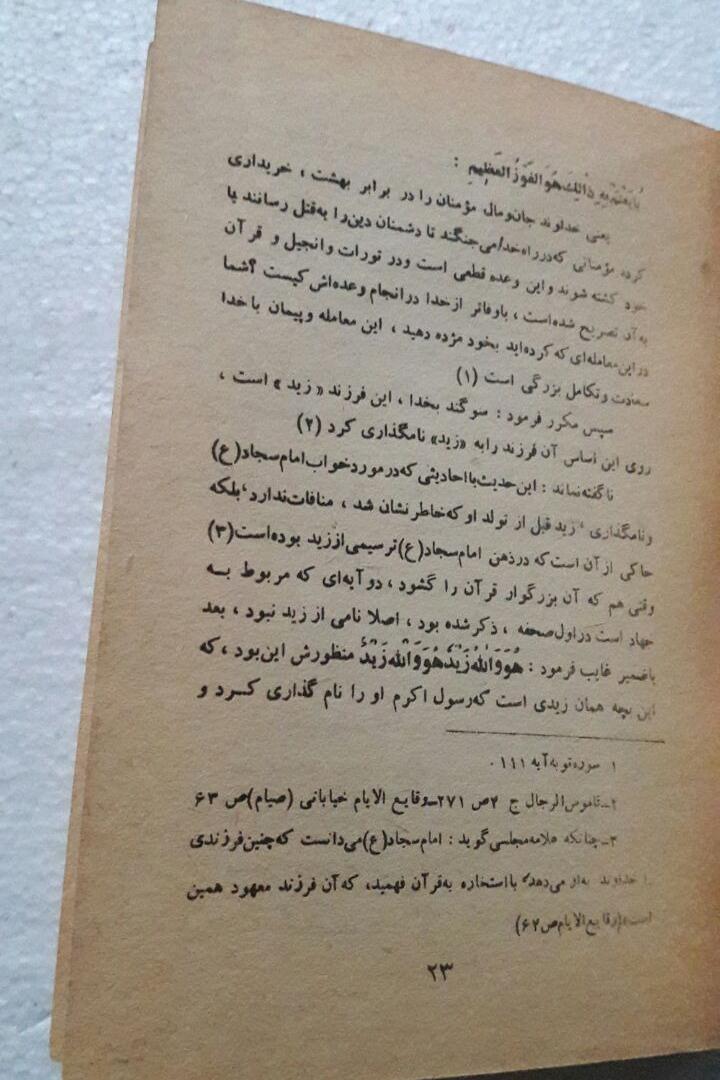 بٰايَعْتُمْ بِهِ وَذٰالِكَ هُوَ الْفَوْزُ الْعَظِيمِ :
یعنی خداوند جان‌ومال مؤمنان را در برابر بهشت ، خریداری
کرده مؤمنانی که‌درراه‌خدا می‌جنگند تا دشمنان دین‌را به‌قتل رسانند یا
خود کشته شوند و این وعده قطعی است ودر تورات وانجیل و قرآن
به‌آن تصریح شده‌است ، باوفاتر ازخدا درانجام وعده‌اش کیست ؟شما
دراین‌معامله‌ای که کرده‌اید بخود مژده دهید ، این معامله وپیمان باخدا
سعادت وتکامل بزرگی است (۱)
سپس مکرر فرمود : سوگند بخدا ، این فرزند «زید» است ،
روی این اساس آن فرزند رابه «زید» نامگذاری کرد (۲)
ناگفته‌نماند : این‌حدیث‌بااحادیثی‌که‌درموردخواب‌امام‌سجاد(ع)
ونامگذاری ، زید قبل از تولد او که‌خاطرنشان شد ، منافات‌ندارد،بلکه
حاکی ازآن است‌که درذهن امام‌سجاد(ع)ترسیمی‌اززید بوده‌است(۳)
وقتی هم که آن بزرگوار قرآن را گشود ، دوآیه‌ای که مربوط بـه
جهاد است دراول‌صحفه ، ذکرشده بود ، اصلا نامی از زید نبود ، بعد
باضمیر غایب فرمود : هُوَوَاللهُ زَيْدٌ هُوَوَاللهُ زَيْدٌ منظورش این‌بود ، که
این بچه همان زیدی است که‌رسول اکرم او را نام گذاری کـرد و
۱ سوره‌توبه‌آیه ۱۱۱ .
۲ـ‌قاموس‌الرجال ج ۴ص ۲۷۱ـ‌وقایع الایام خیابانی (صیام)ص ۶۳
۳ـ‌چنانکه علامه‌مجلسی‌گوید : امام‌سجاد(ع)می‌دانست که‌چنین‌فرزندی
را خداوند به‌او می‌دهد، بااستخاره به‌قرآن فهمید، که‌آن فرزند معهود همین
است،(وقایع‌الایام‌ص۶۲)
۲۳